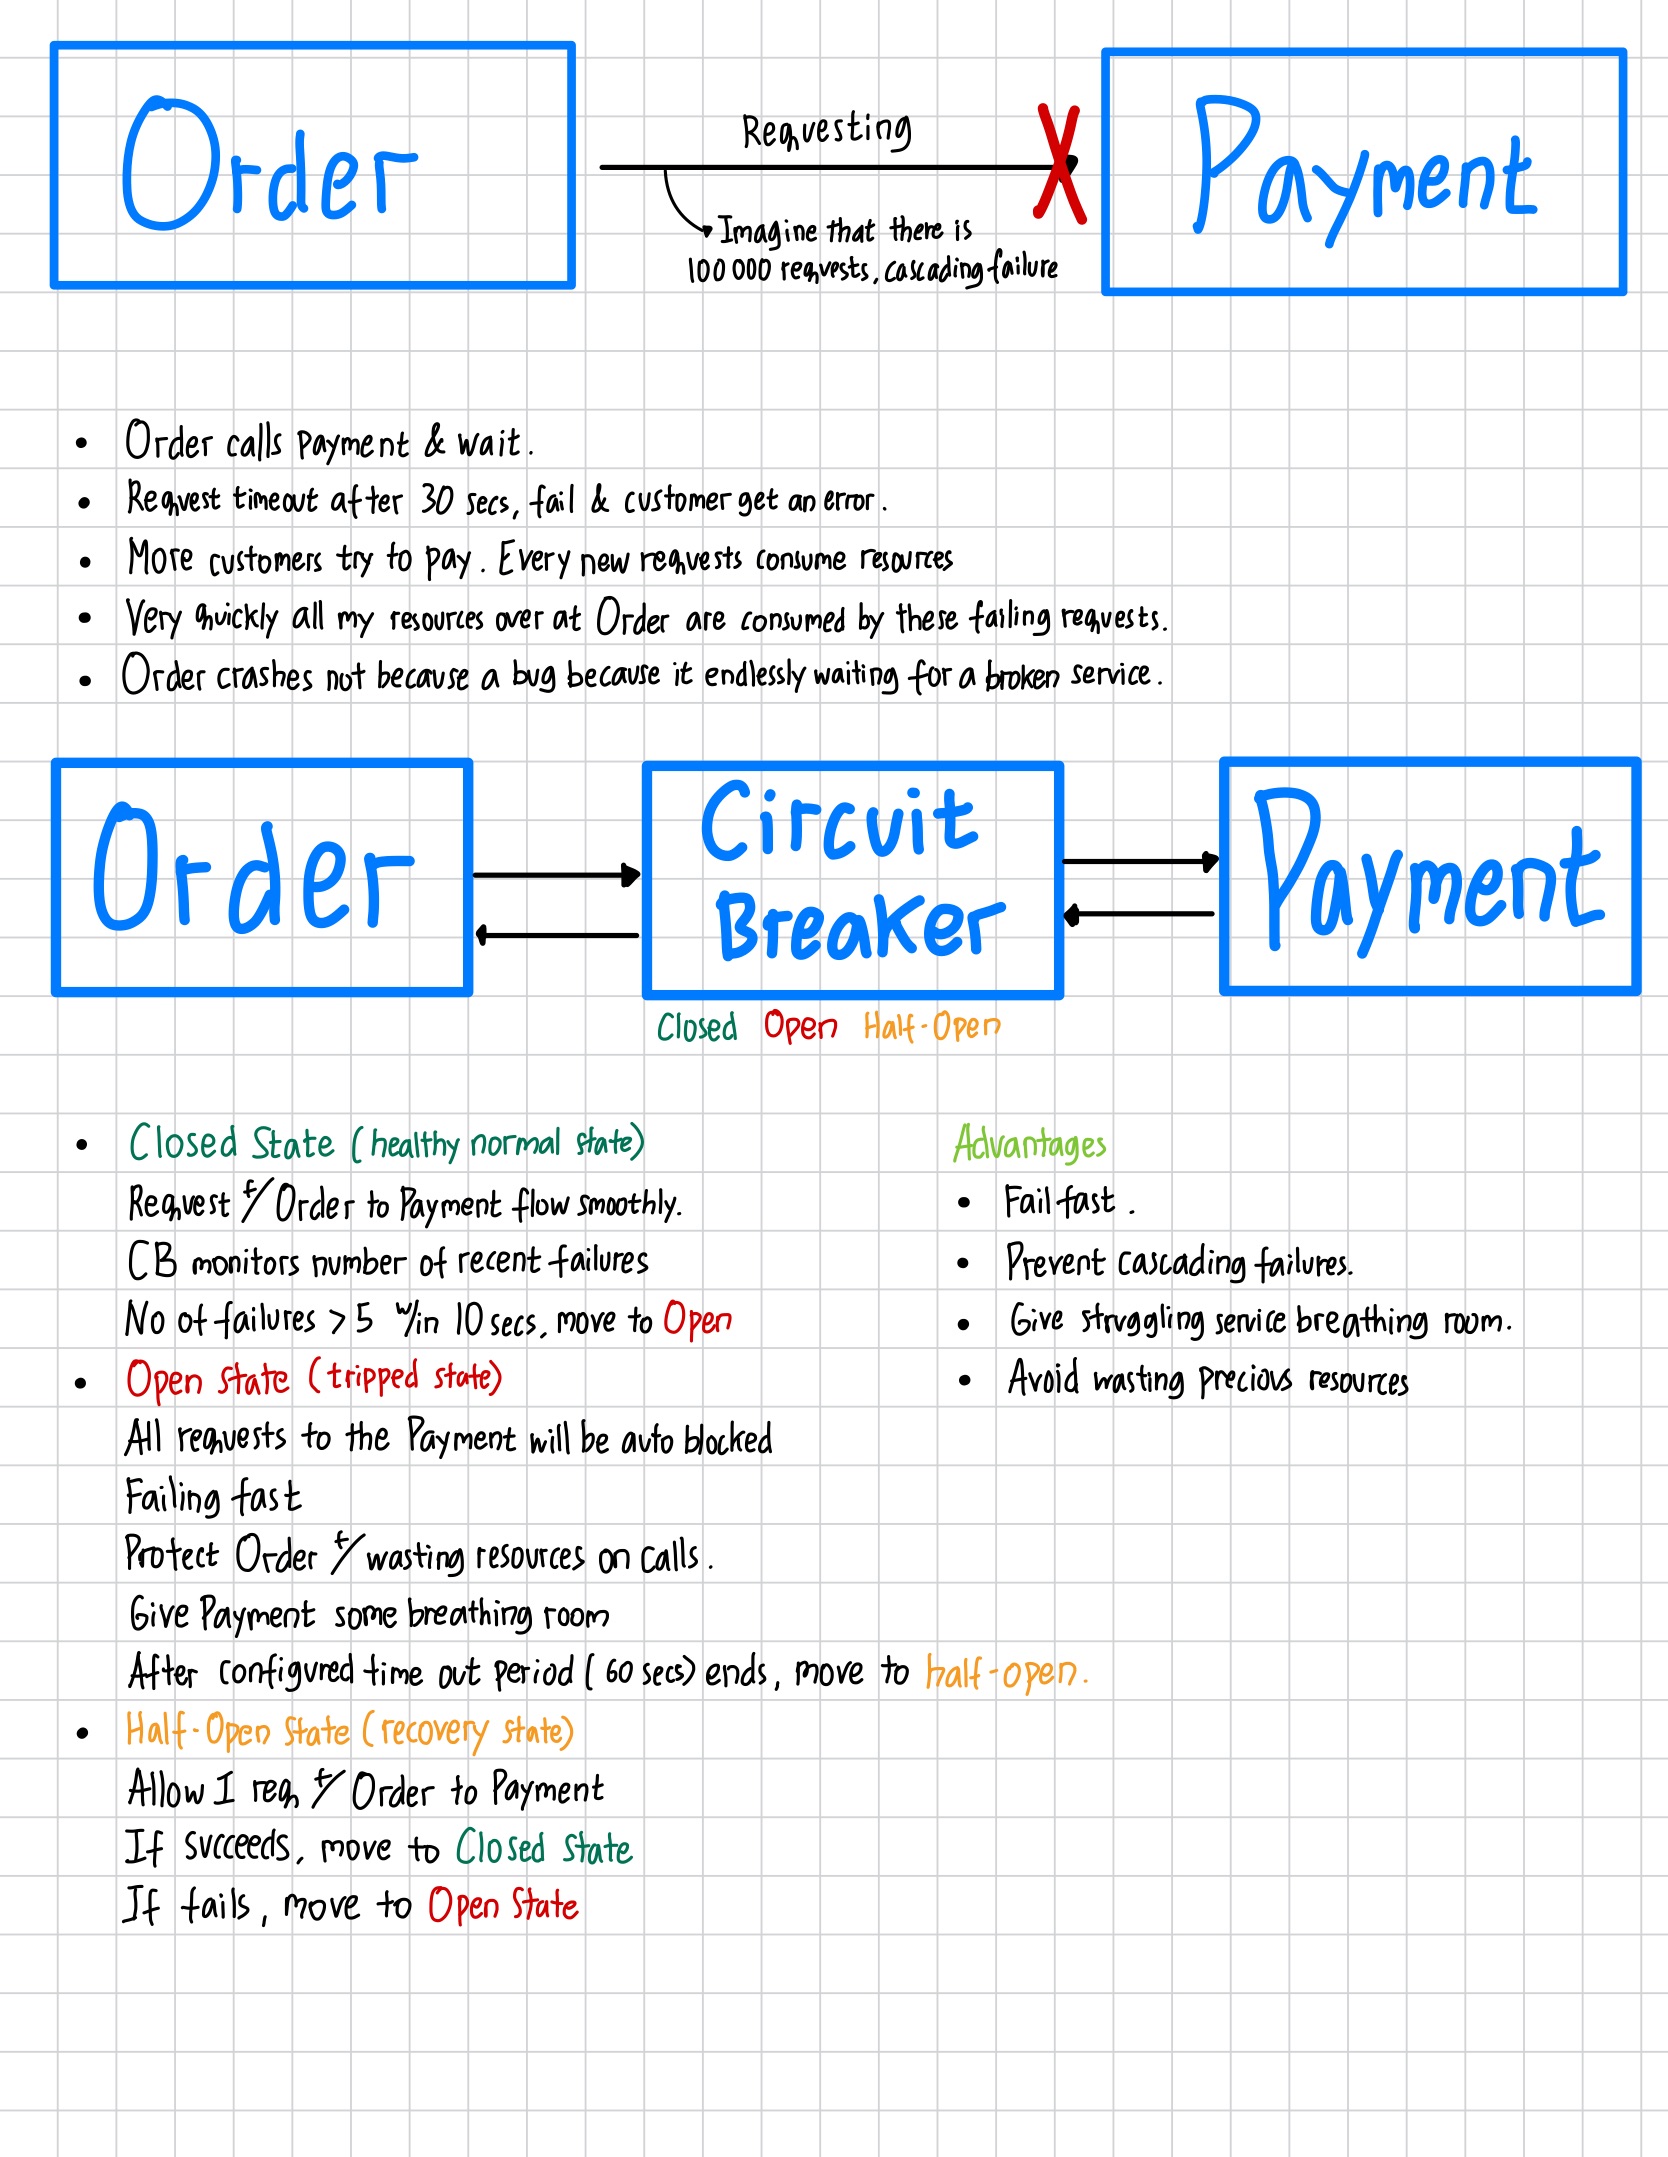 Order
Requesting
Payment
Imagine that there is
100 000 requests, cascading failure
• Order calls Payment & wait.
• Request timeout after 30 secs, fail & customer get an error.
• More customers try to pay. Every new requests consume resources
• Very quickly all my resources over at Order are consumed by these failing requests.
• Order crashes not because a bug because it endlessly waiting for a broken service.
Order
Circuit
Breaker
Payment
Closed Open Half-Open
• Closed State (healthy normal state)
Request f/ Order to Payment flow smoothly.
CB monitors number of recent failures
No of failures > 5 w/in 10 secs, move to Open
• Open State (tripped state)
All requests to the Payment will be auto blocked
Failing fast
Protect Order f/ wasting resources on calls.
Give Payment some breathing room
After configured time out period (60 secs) ends, move to half-open.
• Half-Open State (recovery state)
Allow 1 req f/ Order to Payment
If succeeds, move to Closed State
If fails, move to Open State
Advantages
• Fail fast.
• Prevent cascading failures.
• Give struggling service breathing room.
• Avoid wasting precious resources